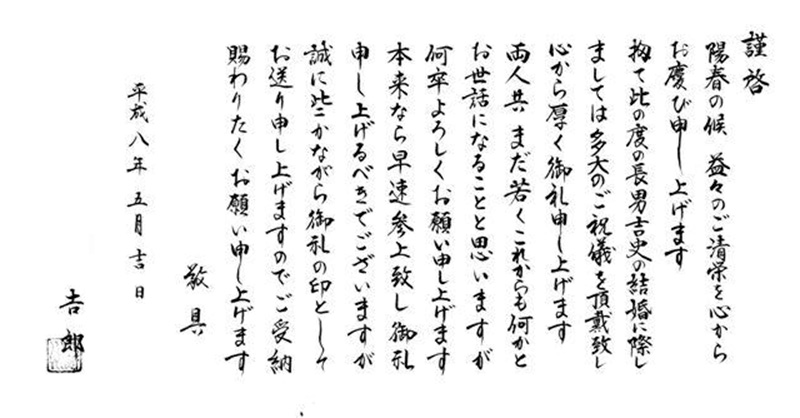 謹啓
陽春の候 益々のご清栄を心から
お慶び申し上げます
拘て此の度の長男吉史の結婚に際し
ましては多大のご祝儀を頂戴致し
心から厚く御礼申し上げます
両人共 まだ若くこれからも何かと
お世話になることと思いますが
何卒よろしくお願い申し上げます
本来なら早速参上致し御礼
申し上げるべきでございますが
誠に些かながら御礼の印として
お送り申し上げますのでご受納
賜わりたくお願い申し上げます
敬具
平成八年 五月吉日
吉郎